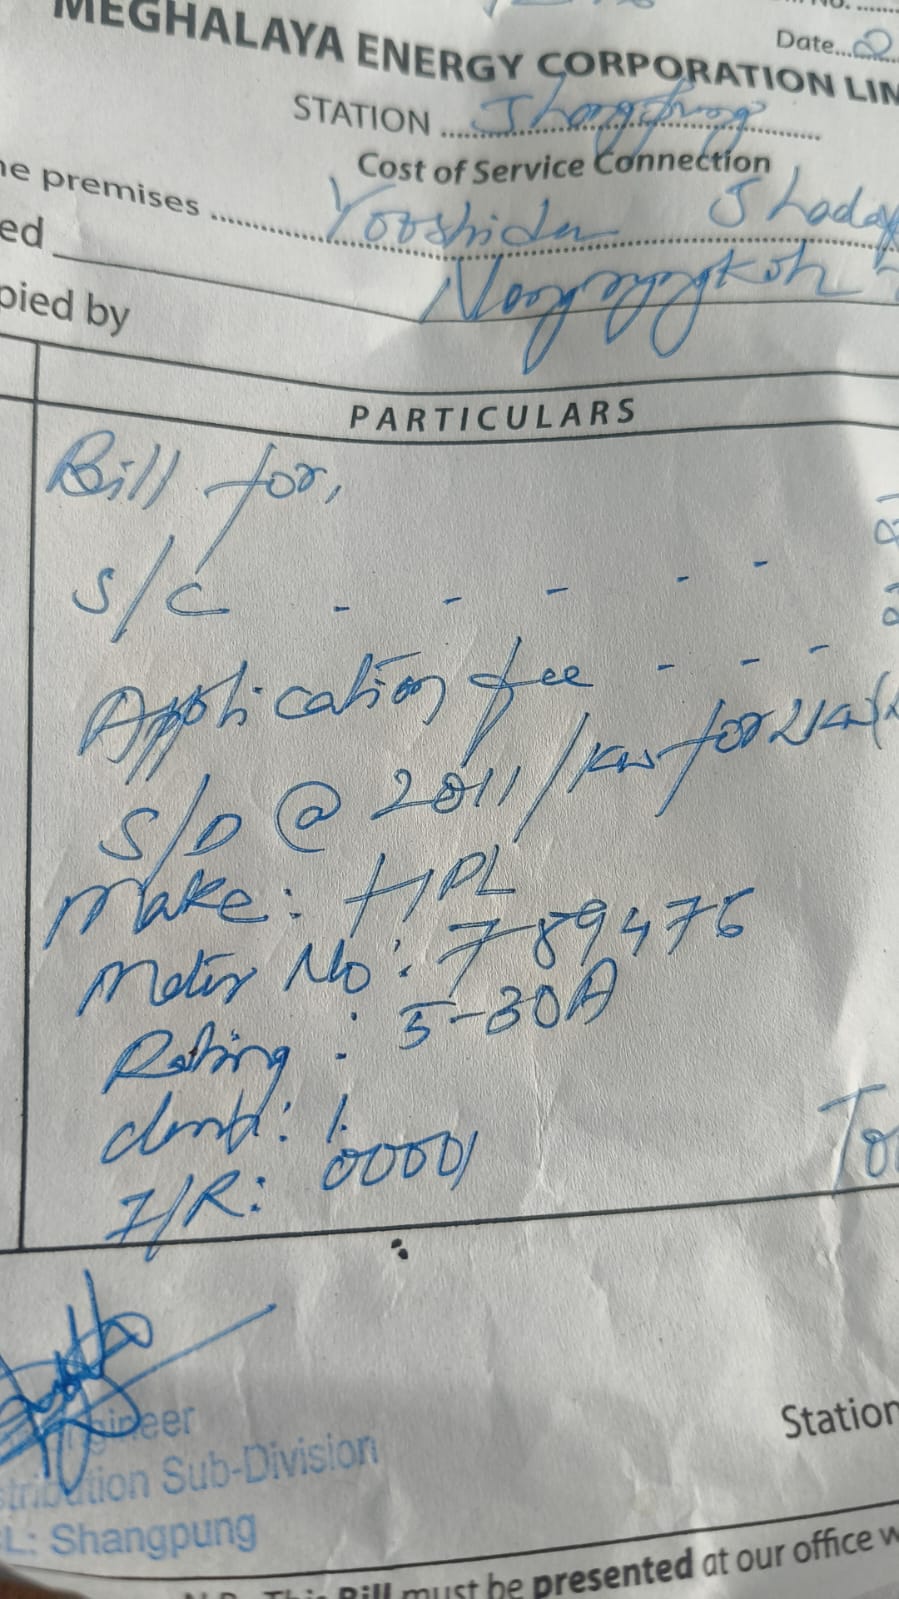 MEGHALAYA ENERGY CORPORATION LIM
Date...
STATION Shangpung
Cost of Service Connection
he premises
ed
pied by
PARTICULARS
Bill for,
S/C - - - - -
Application fee - - -
S/D @ 2011/kw for 2kw
Make: HPL
Meter No: 789476
Rating : 5-30A
I/R: 00001
To
gineer
stribution Sub-Division
L: Shangpung
Station
N.B. This Bill must be presented at our office w